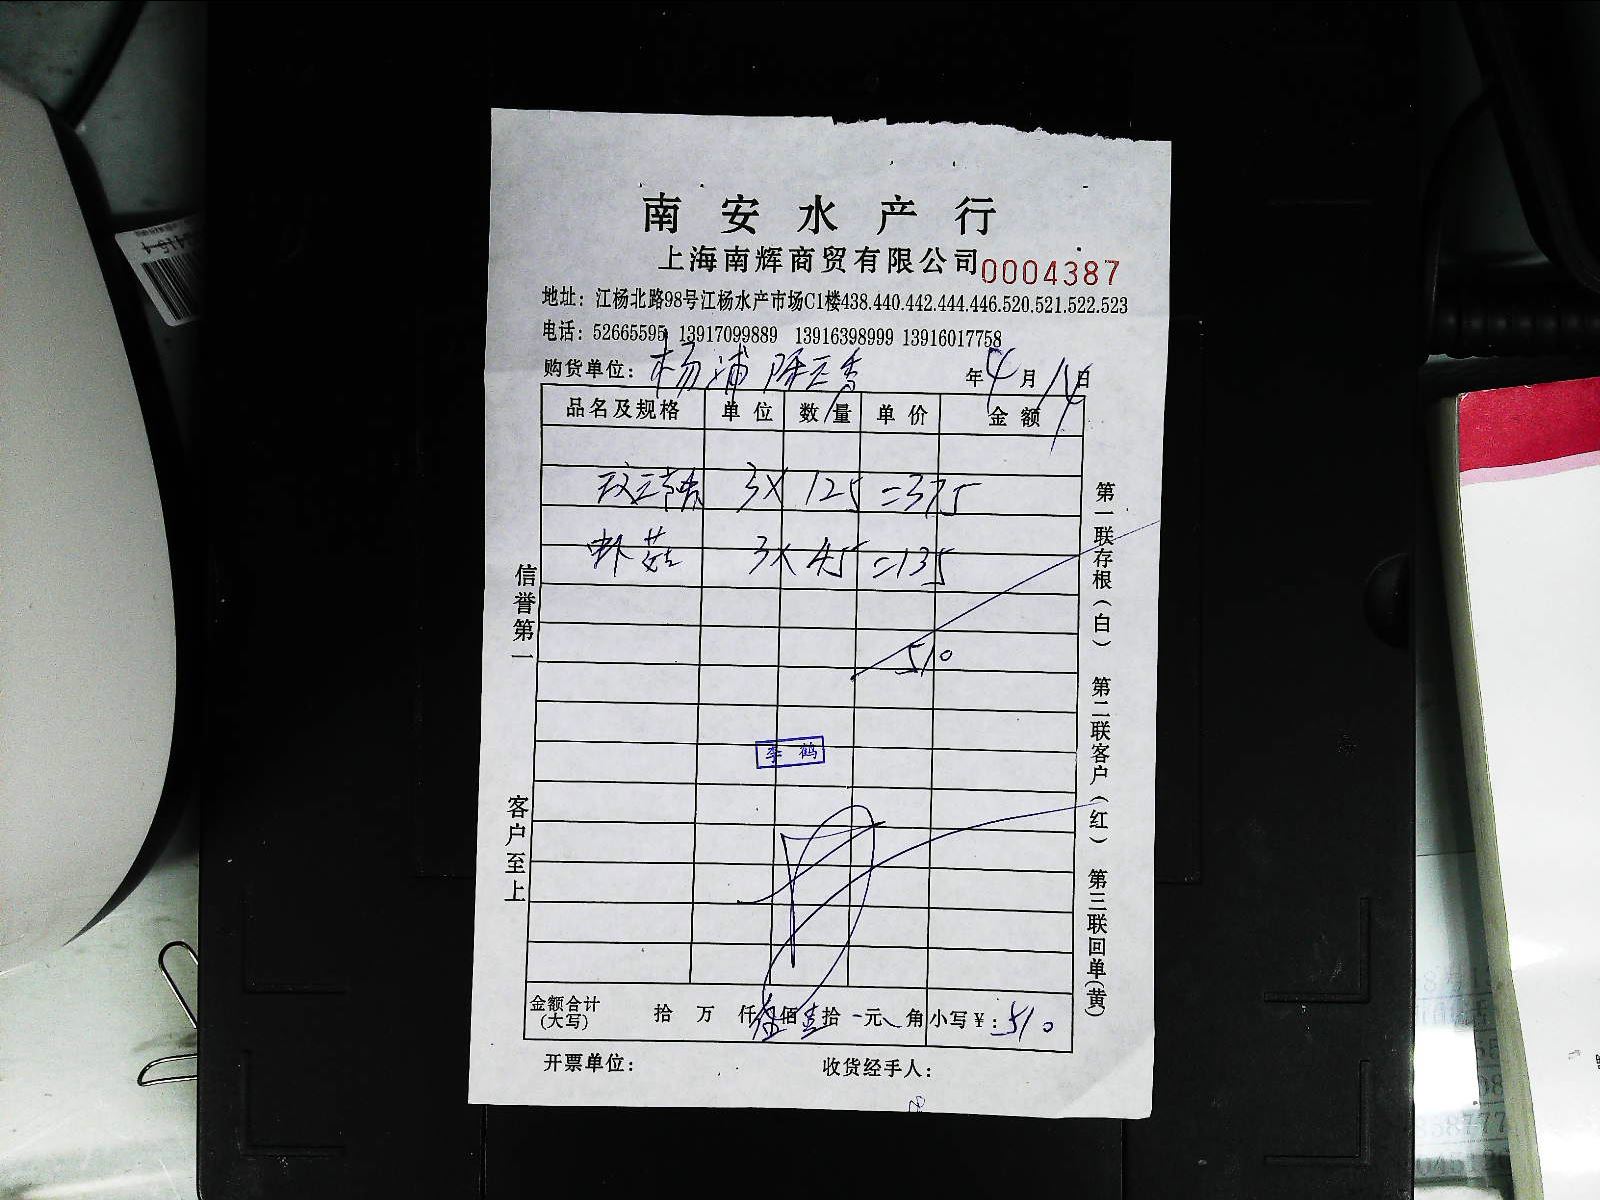 南安水产行
上海南辉商贸有限公司 0004387
地址：江杨北路98号江杨水产市场C1楼438.440.442.444.446.520.521.522.523
电话：52665595 13917099889 13916398999 13916017758
购货单位：杨浦 年4月14日
品名及规格 单位 数量 单价 金额
3×125=375
虾菇 3×45=135
510
李鹤
金额合计(大写) 拾 万 仟伍佰壹拾 元 角 小写￥：510
开票单位： 收货经手人：
信誉第一
客户至上
第一联存根（白） 第二联客户（红） 第三联回单(黄)